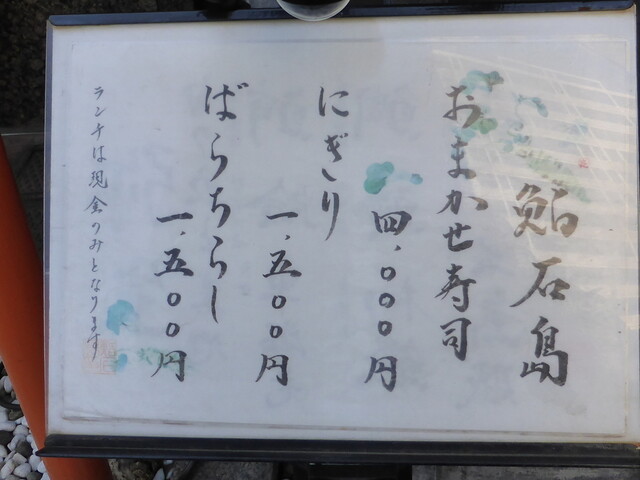 鮨石島
おまかせ寿司
四、〇〇〇円
にぎり
一、五〇〇円
ばらちらし
一、五〇〇円
ランチは現金のみとなります